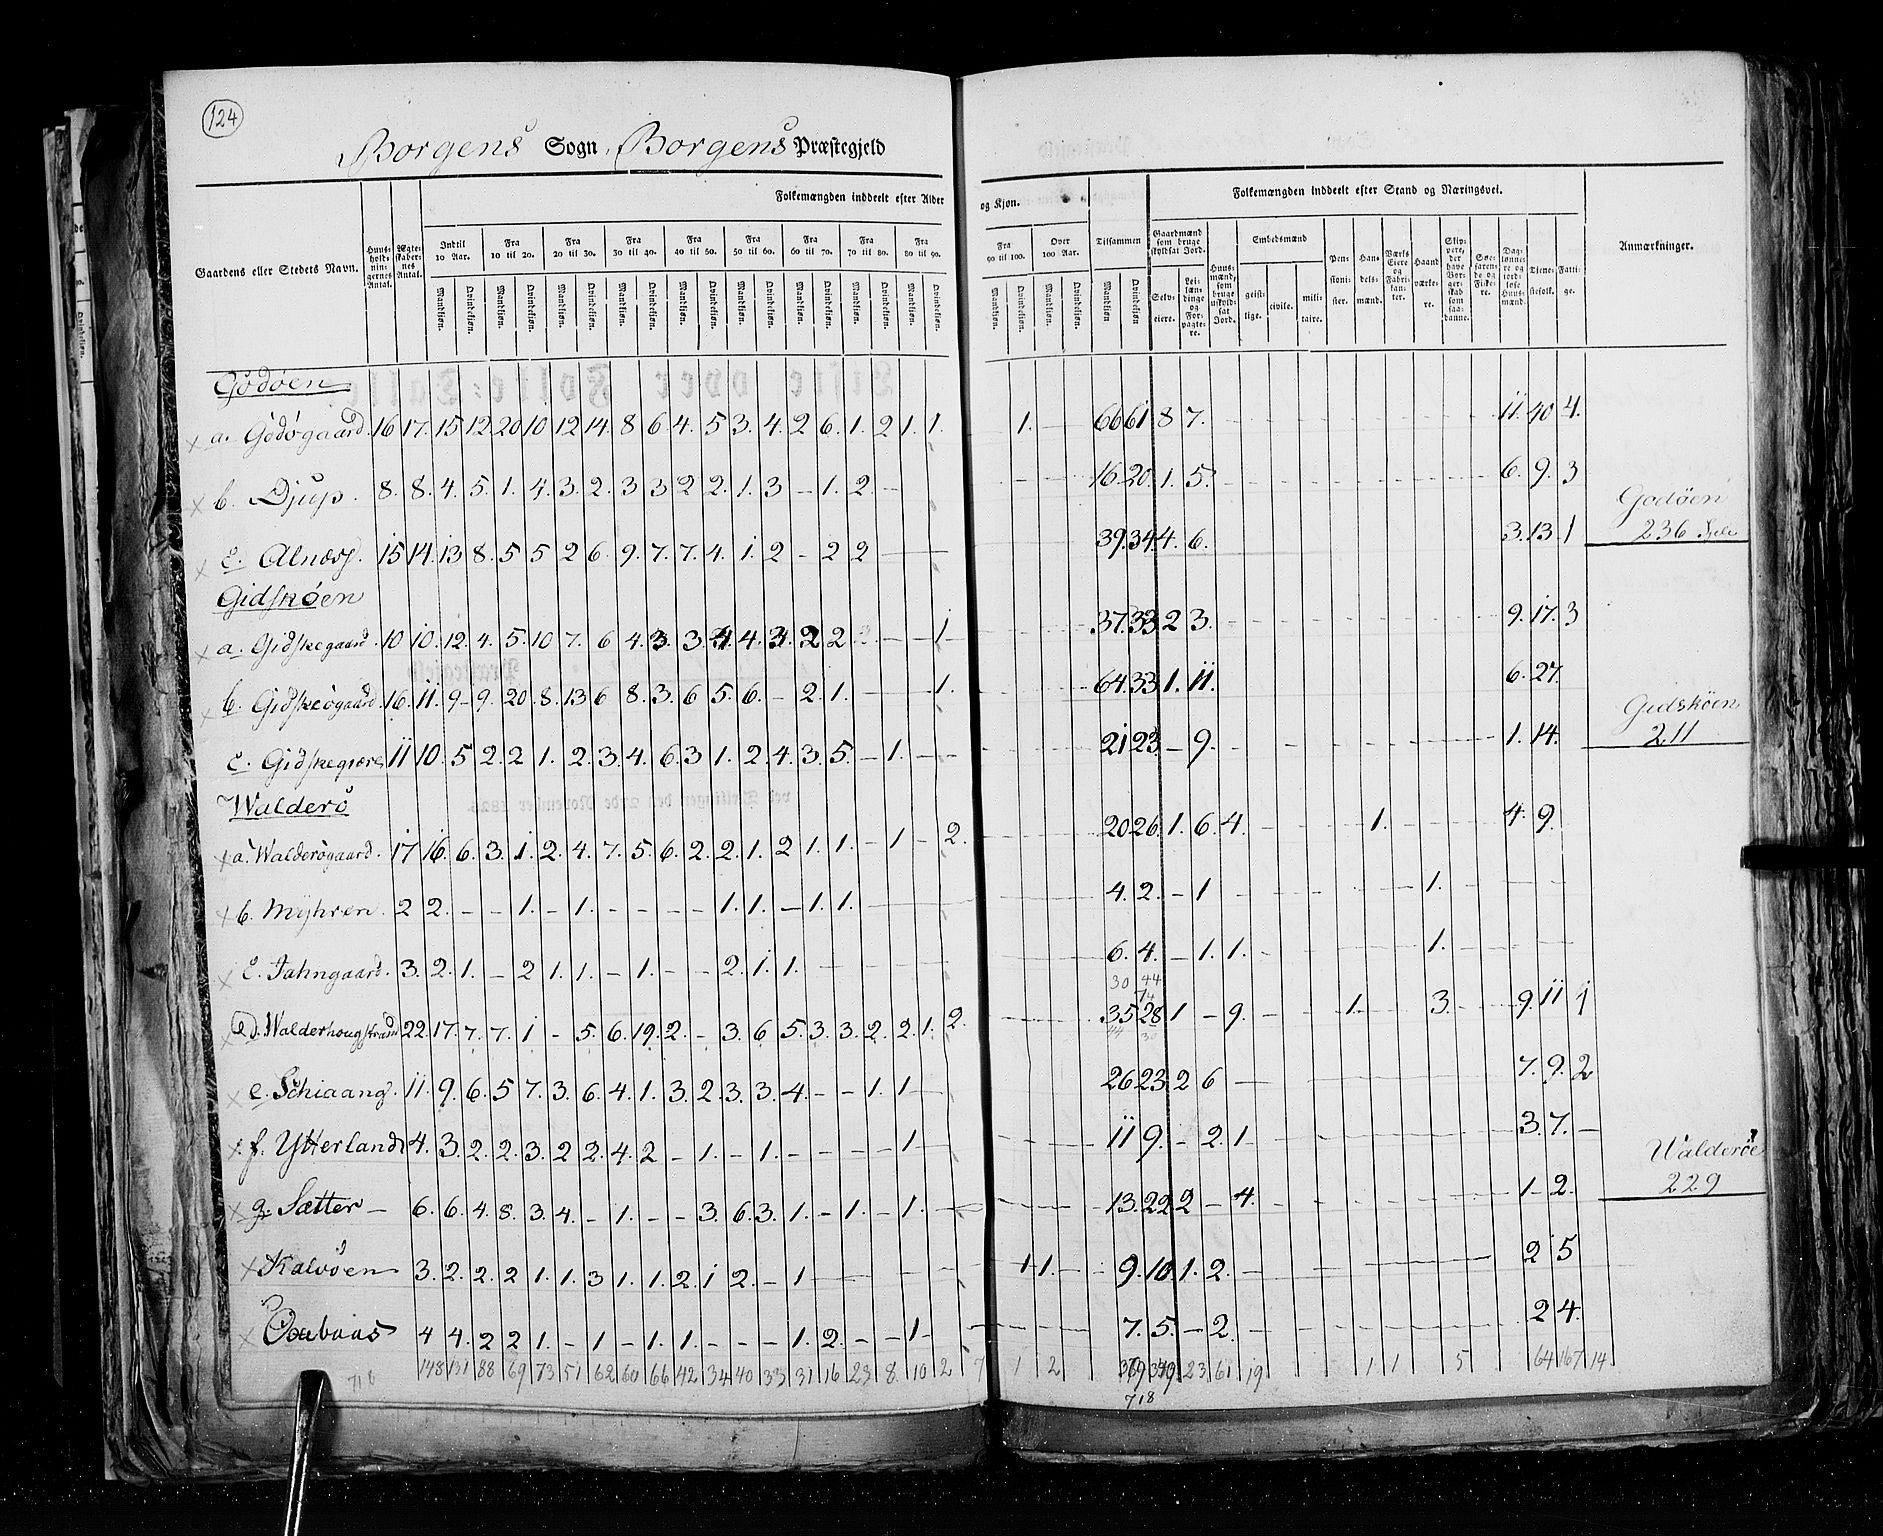 124
Borgens Sogn Borgens Præstegjeld
Folkemængden inddeelt efter Alder og Kjøn. Folkemængden inddeelt efter Stand og Næringsvei.
Gaardens eller Stedets Navn. Huus-hold-nin-gernes Antal. Ægte-skaber-nes Antal. Indtil 10 Aar. Fra 10 til 20. Fra 20 til 30. Fra 30 til 40. Fra 40 til 50. Fra 50 til 60. Fra 60 til 70. Fra 70 til 80. Fra 80 til 90. Fra 90 til 100. Over 100 Aar. Tilsammen Gaardmænd som bruge skyldsat Jord. Embedsmænd Anmærkninger.
Mandkjøn. Qvindekjøn.
Selv-eiere. Lei-læn-dinge og For-pagte-re. Huus-mænd, som bruge uskyld-sat Jord. geist-lige. civile. mili-taire. Pen-sioni-ster. Han-dels-mænd. Værks Eiere og Fabri-kan-ter. Haand værke-re. Skip-pere, der have Bor-ger-skab som saa-danne. Søe-faren-de og Fiske-re. Dag-lønne-re og jord-løse Huus-mænd. Tjene-stefolk. Fatti-ge.
Godøen
a. Godøgaard. 16 17. 15 12. 20 10 12 14. 8 6. 4. 5 3. 4. 2 6. 1. 2 1. 1. 1. 66 61 8 7. 11. 40 4.
b. Djup. 8. 8. 4. 5. 1. 4. 3. 2. 3 3 2 2. 1. 3 - 1. 2. - 16. 20. 1. 5. 6. 9. 3
c. Alnæs. 15 14. 13 8. 5 5 2 6. 9. 7. 7. 4. 1. 2 - 2 2 39. 34. 4. 6. 3. 13. 1
Godøen
236
Gidskøen
a. Gidskegaard. 10 10. 12. 4. 5. 10 7. 6 4. 3. 3. 4. 4. 3. 2 2. - - 1. 37. 33 2 3. 9. 17. 3
b. Gidskeøgaard. 16. 11. 9 - 9. 20. 8. 13 6 8. 3. 6 5. 6. - 2. 1. - 1. 64. 33 1. 11. 6. 27.
c. Gidskegjære 11 10. 5 2. 2 1. 2. 3. 4. 6. 3 1. 2. 4. 3. 5. - 1. - - 21 23 - 9. 1. 14.
Gidskøen
211
Walderø
a. Walderøgaard. 17 16. 6. 3. 1. 2. 4. 7. 5. 6. 2. 2. 1. 2 1. 1. - 1 - 2. 20 26. 1. 6. 4. 1. 4. 9.
b. Myhren. 2 2. - - 1. - 1. - - - - 1. 1. - 1. 1. 4. 2. - 1 1.
c. Jahngaard. 3. 2. 1. - 2 1. 1. - 1. - - 2. 1. 1. 6. 4. - 1. 1. 1.
30 44
74
d. Walderhougstrand 22. 17. 7. 7. 1 - 5. 6. 19. 2. - 3. 6 5. 3 3. 2. 2. 1. 2. 35 28 1 - 9. 1. 3. 9. 11 1
e. Schiaang. 11. 9. 6. 5 7. 3. 6. 4. 1. 3. 2. 3. 3. 4. - - 1. 1. 26 23. 2 6 7. 9. 2
f. Ytterland 4. 3. 2. 2. 3. 2 2. 4. 2 - 1. - 1. - - - - 1 - 11 9. - 2. 1 3. 7. -
g. Sætter - 6. 6. 4. 8. 3. 4. - 1. - - 3. 6. 3. 1. - 1. - 1. 13. 22 2 - 4. 1 - 2.
Walderøe
229
Kalvøen 3. 2. 2. 2 1. 1. 3 1. 1. 2. 1 2. - 1 1 1. 9. 10. 1. 2. 2 5
4 4. 2 2 1. - 1 - 1. 1. - - - 1. 2. - - 1 - 7. 5. - 2. 2 4.
148 131 88 69 73 51 62 60 66 42 34 40 33 31 16 23 8. 10 2 7 1 2 369 349 23 61 19 1 1 5 64 167 14
718